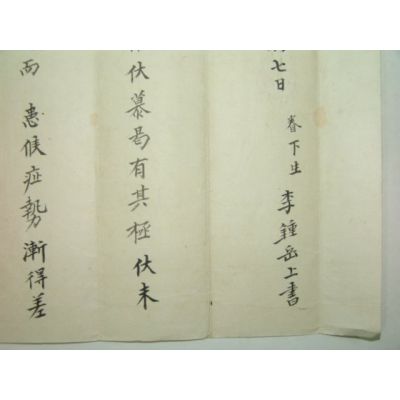 七日 眷下生 李鍾岳上書
伏慕曷有其極伏未
両 患候症勢漸得差